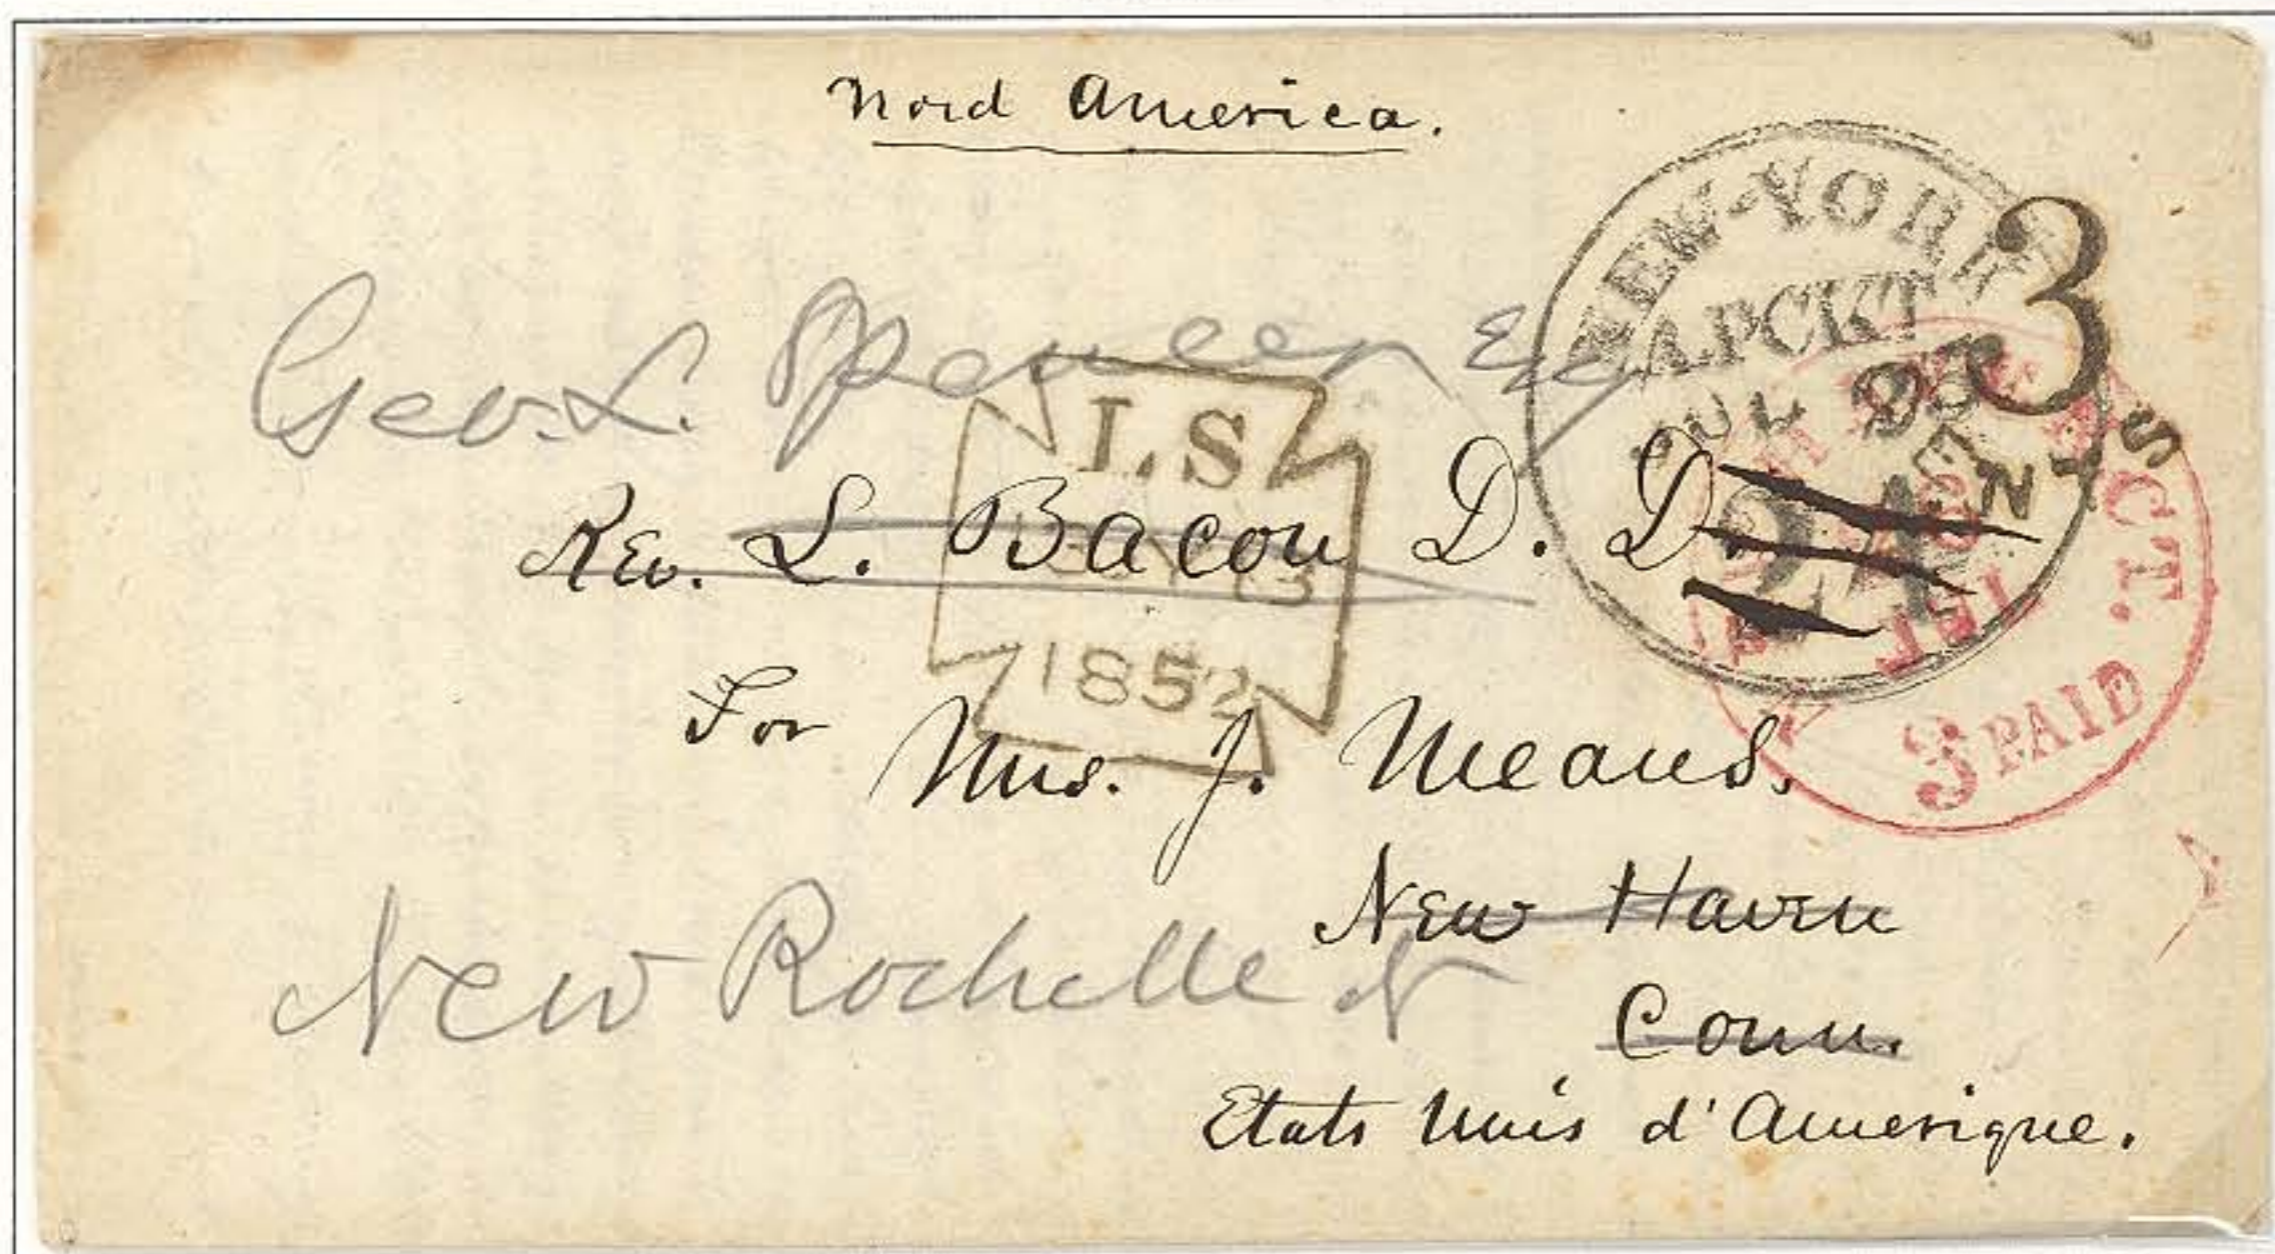 Nord America.
NEW-YORK
AM PCKT
JUL 23
3
CTS
Geo. L. Spencer Esq
L.S
1852
Rev. L. Bacon D. D.
CT.
3 PAID
For
Mrs. J. Means.
New Haven
New Rochelle N
Conn.
Etats Unis d'Amerique.